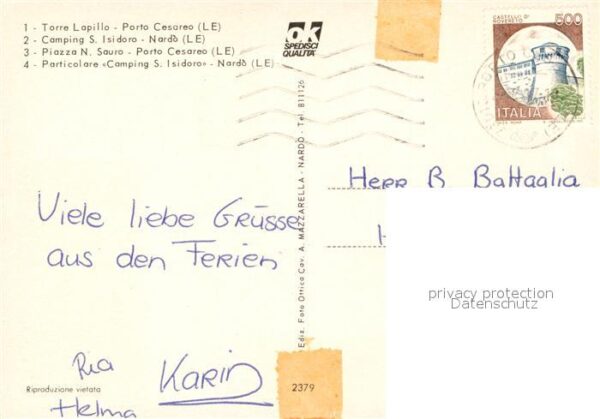 1 - Torre Lapillo - Porto Cesareo (LE)
2 - Camping S. Isidoro - Nardò (LE)
3 - Piazza N. Sauro - Porto Cesareo (LE)
4 - Particolare «Camping S. Isidoro» - Nardò (LE)
ok
SPEDISCI
QUALITA'
CASTELLO DI
ROVERETO
500
ITALIA
Ediz. Foto Ottica Cav. A. MAZZARELLA - NARDÒ - Tel. 811126
Herr B. Battaglia
Viele liebe Grüsse
aus den Ferien
privacy protection
Datenschutz
Pia
Karin
Helma
Riproduzione vietata
2379